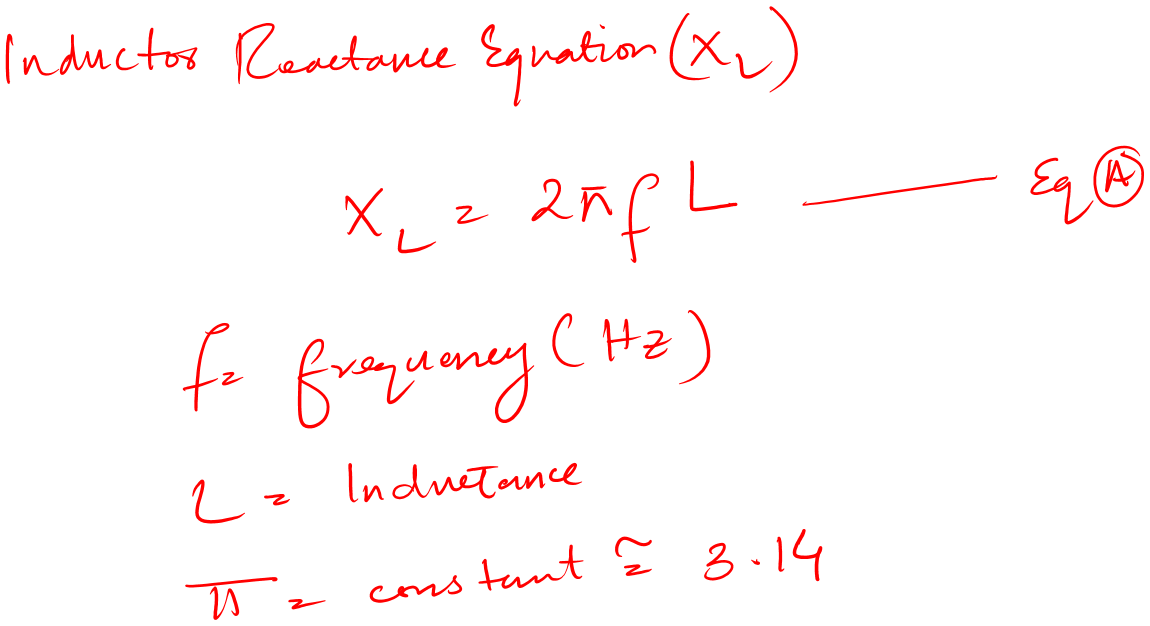 Inductor Reactance Equation (X_L)
X_L = 2πf L —— Eq (A)
f = frequency (Hz)
L = Inductance
π = constant ≅ 3.14